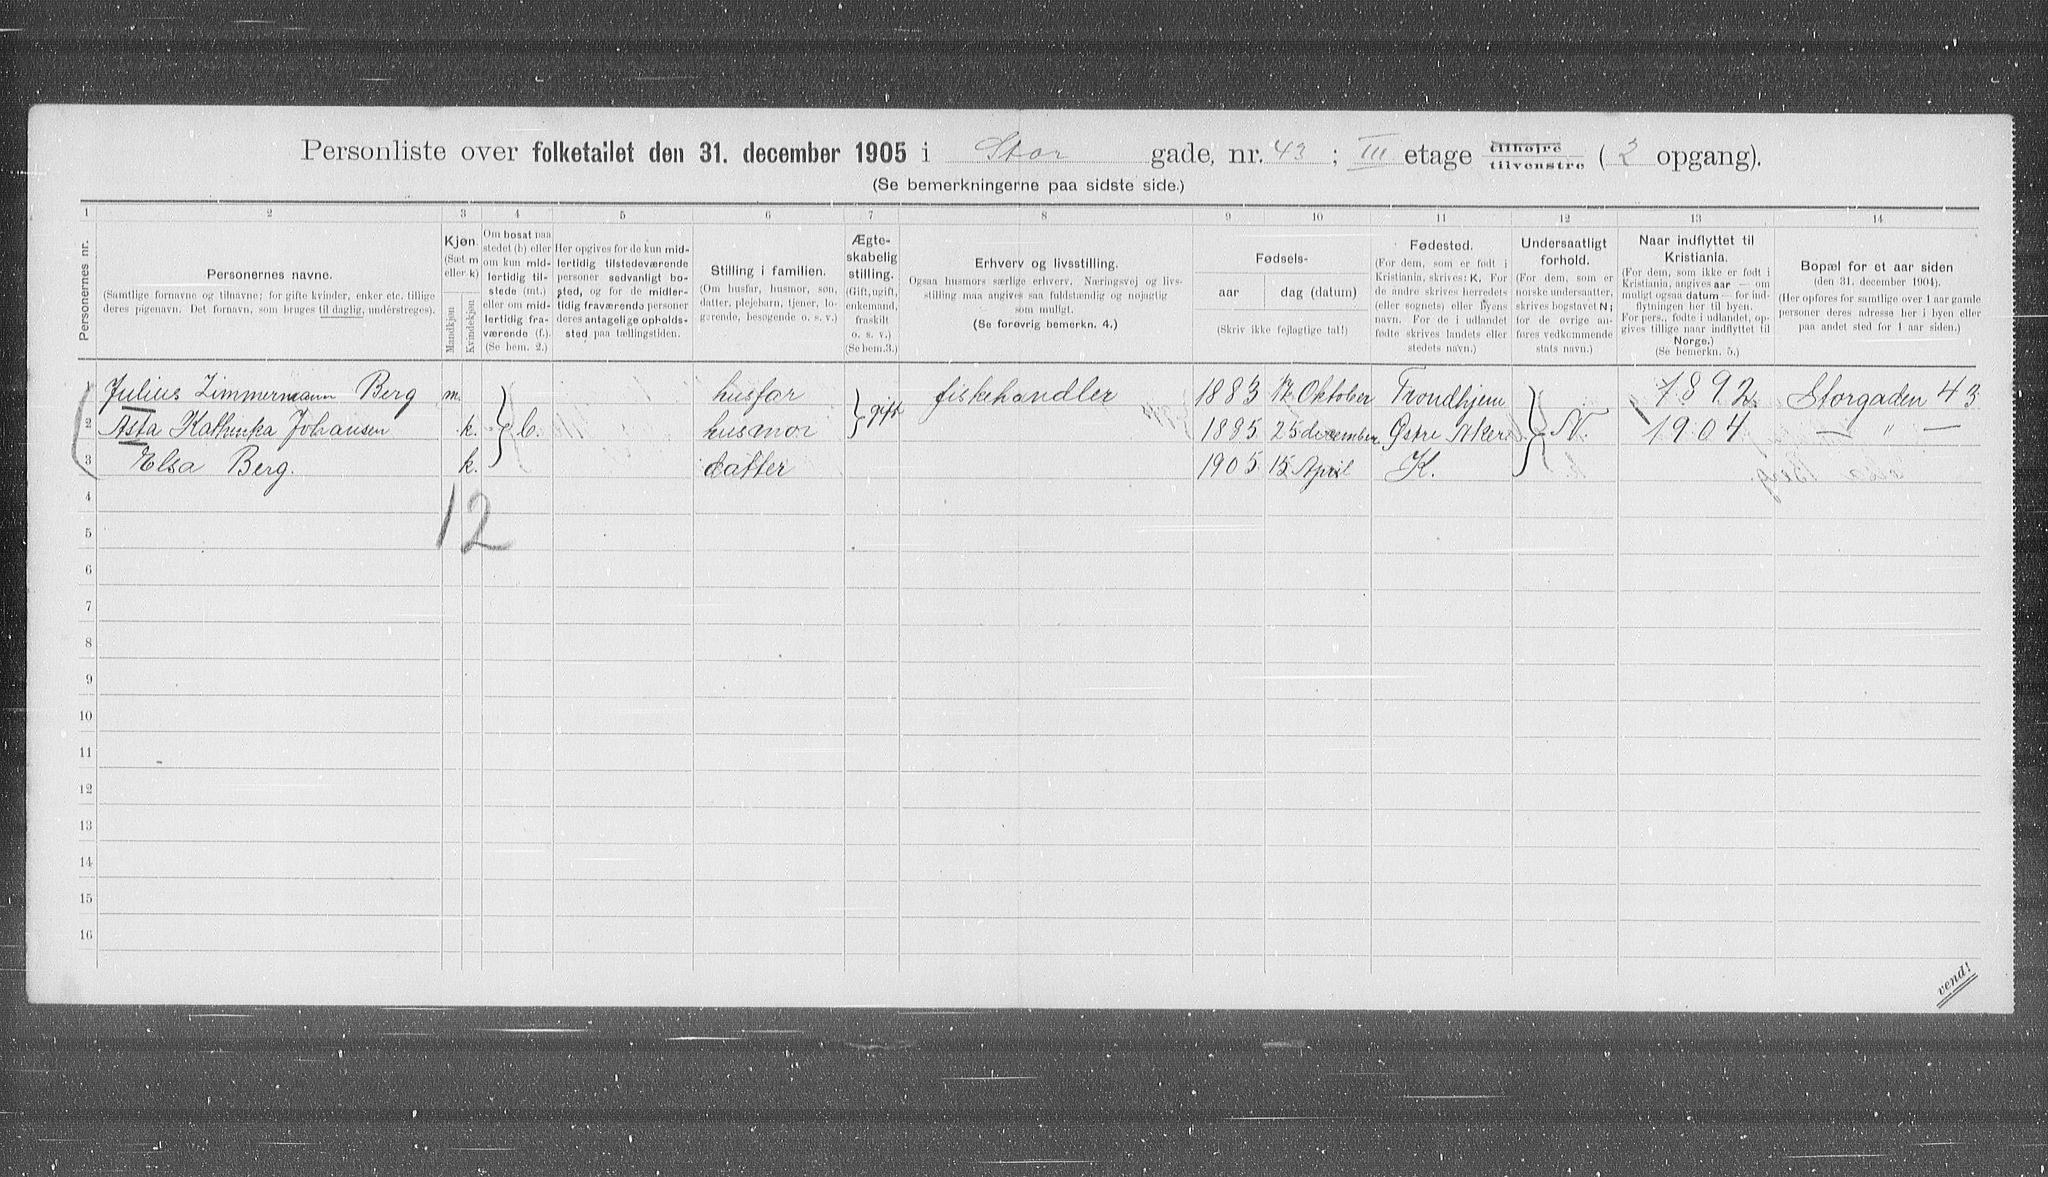 Personliste over folketallet den 31. december 1905 i Stor gade, nr. 43 ; III etage tilhøjre tilvenstre ( 2 opgang).
(Se bemerkningerne paa sidste side.)
1 2 3 4 5 6 7 8 9 10 11 12 13 14
Personernes nr.
Personernes navne.
(Samtlige fornavne og tilnavne; for gifte kvinder, enker etc. tillige
deres pigenavn. Det fornavn, som bruges til daglig, understreges).
Kjøn
(Sæt m
eller k)
Mandkjøn
Kvindekjøn
Om bosat paa
stedet (b) eller
om kun mid-
lertidig til-
stede (mt.)
eller om mid-
lertidig fra-
værende (f.).
(Se bem. 2.)
Her opgives for de kun mid-
lertidig tilstedeværende
personer sedvanligt bo-
sted, og for de midler-
tidig fraværende personer
deres antagelige opholds-
sted paa tællingstiden.
Stilling i familien.
(Om husfar, husmor, søn,
datter, plejebarn, tjener, lo-
gerende, besøgende o. s. v.)
Ægte-
skabelig
stilling.
(Gift, ugift,
enkemand,
fraskilt
o. s. v.)
(Se bem.3.)
Erhverv og livsstilling.
Ogsaa husmors særlige erhverv. Næringsvej og livs-
stilling maa angives saa fuldstændig og nøjagtig
som muligt.
(Se forøvrig bemerkn. 4.)
Fødsels-
aar dag (datum)
(Skriv ikke fejlagtige tal!)
Fødested.
(For dem, som er født i
Kristiania, skrives: K. For
de andre skrives herredets
(eller sognets) eller byens
navn. For de i udlandet
fødte skrives landets eller
stedets navn.)
Undersaatligt
forhold.
(For dem, som er
norske undersaatter,
skrives bogstavet N;
for de øvrige an-
føres vedkommende
stats navn.)
Naar indflyttet til
Kristiania.
(For dem, som ikke er født i
Kristiania, angives aar — om
muligt ogsaa datum — for ind-
flytningen her til byen.
For pers., fødte i udlandet, op-
gives tillige naar indflyttet til
Norge.)
(Se bemerkn. 5.)
Bopæl for et aar siden
(den 31. december 1904).
(Her opføres for samtlige over 1 aar gamle
personer deres adresse her i byen eller
paa andet sted for 1 aar siden.)
Julius Zimmermann Berg m. husfar fiskehandler 1883 Oktober Trondhjem 1892 Storgaden 43
2 Asta Kathinka Johansen k. b. husmor gift 1885 25 december Østre Aker N. 1904 — " —
3 Elsa Berg. k. datter 1905 15 April K.
12
4
5
6
7
8
9
10
11
12
13
14
15
16
vend!